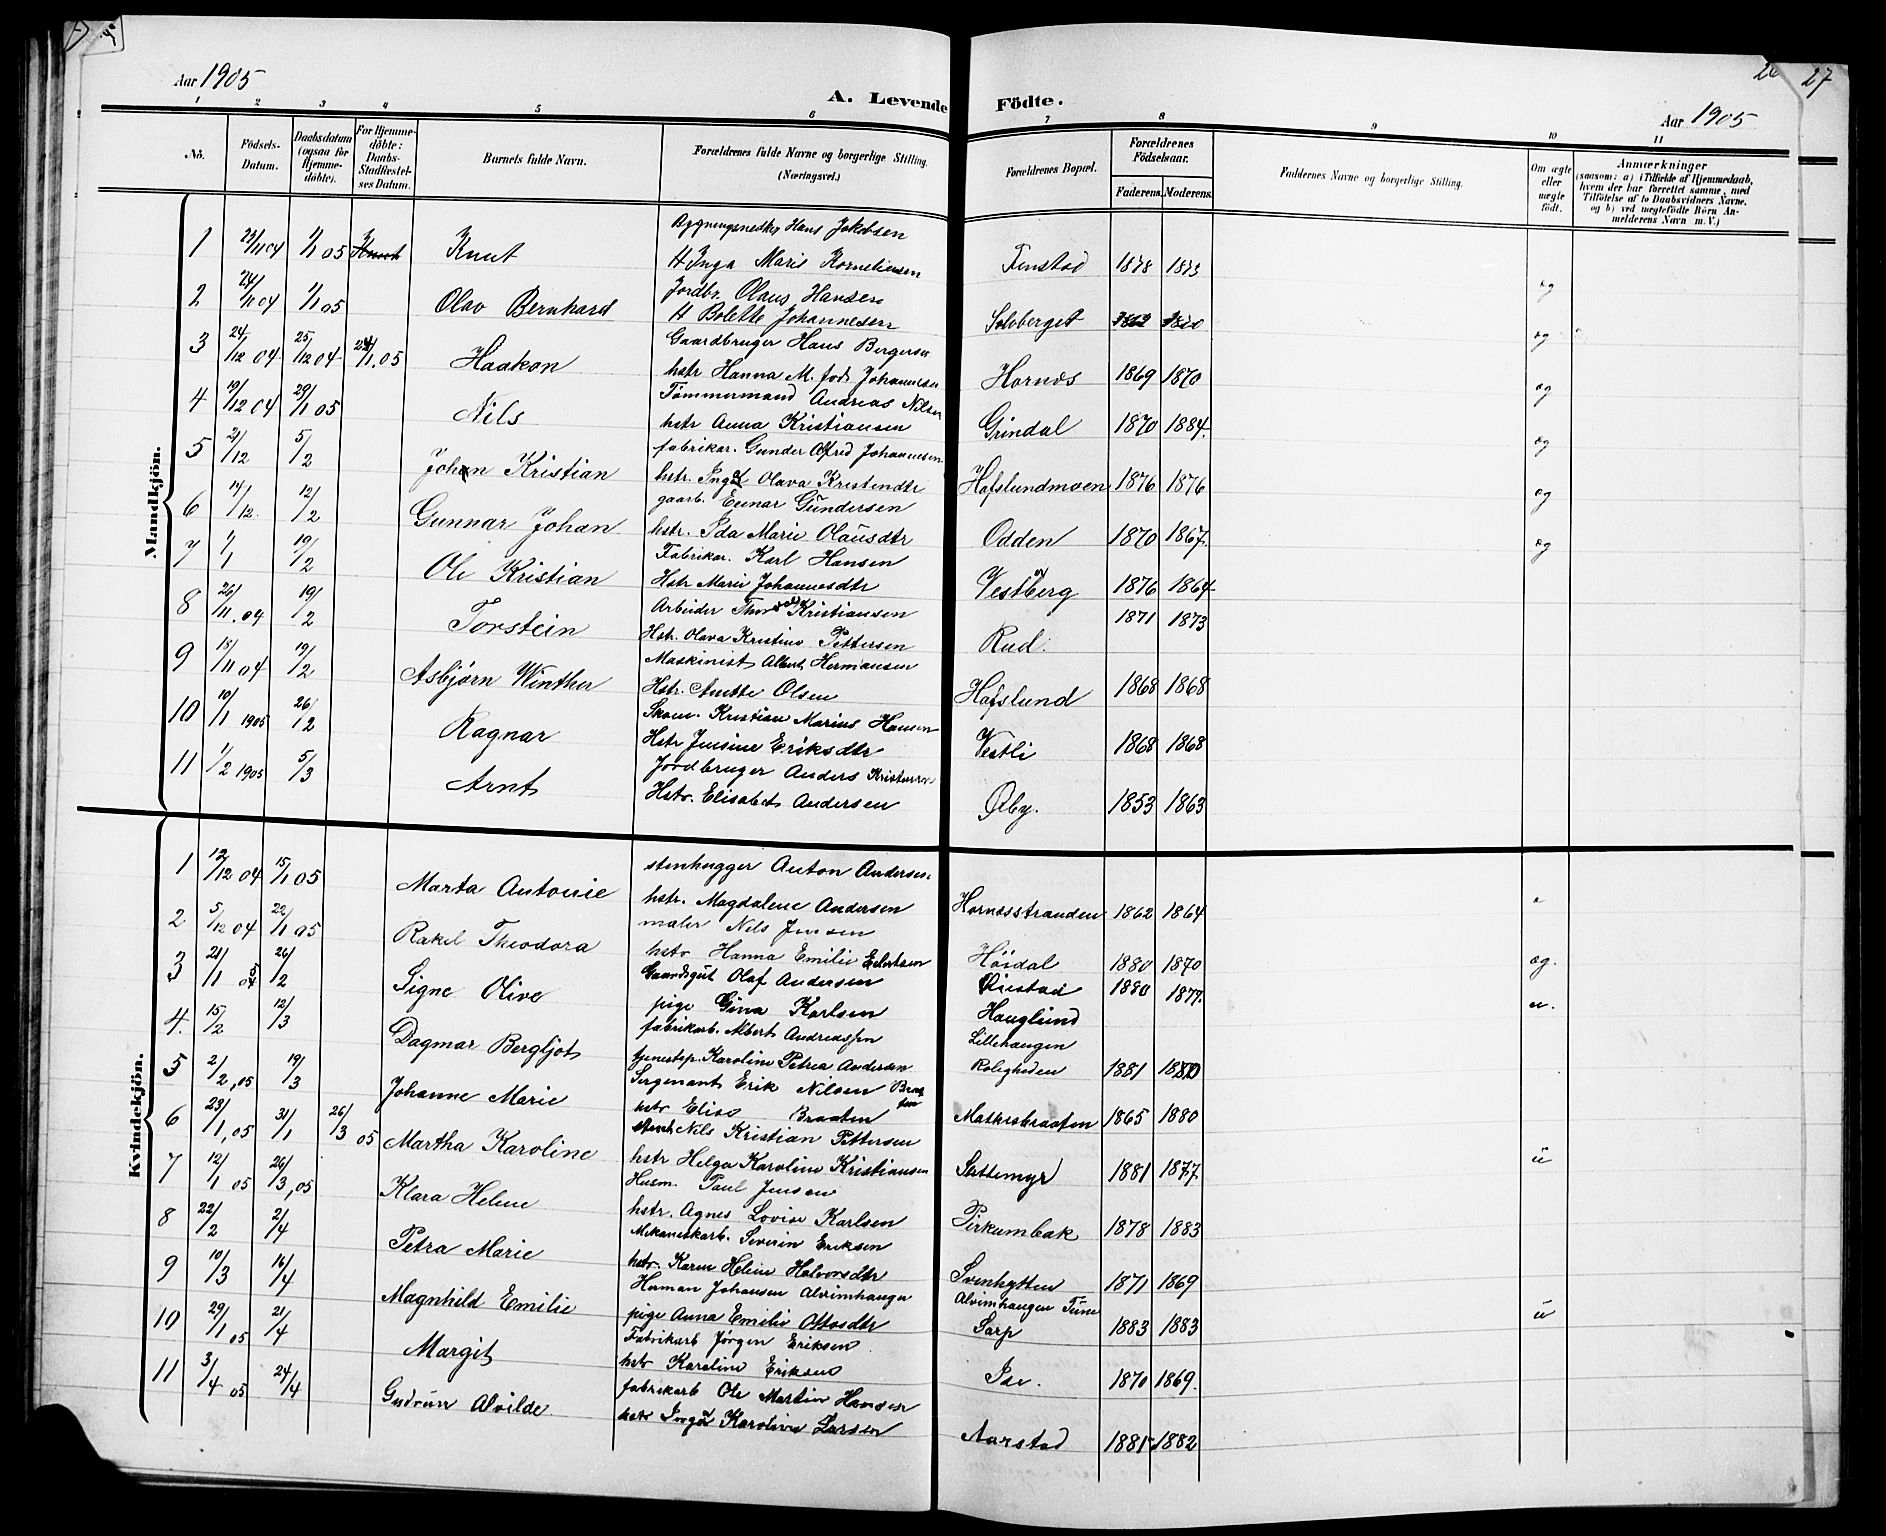 Aar 1905
A. Levende Födte.
Aar 1905
27
1 2 3 4 5 6 7 8 9 10 11
No.
Födsels-Datum.
Daabsdatum (ogsaa for Hjemmedöbte).
For Hjemmedöbte: Daabs-Stadfæstelses Datum.
Barnets fulde Navn.
Forældrenes fulde Navne og borgerlige Stilling. (Næringsvei.)
Forældrenes Bopæl.
Forældrenes Födselsaar.
Faderens. Moderens.
Faddernes Navne og borgerlige Stilling.
Om ægte eller uægte födt.
Anmærkninger
(saasom: a) i Tilfælde af Hjemmedaab, hvem der har forrettet samme, med Tilföielse af to Daabsvidners Navne, og b) ved uægtefödte Börn Anmelderens Navn m. V.)
Mandkjön.
1 23/11 04 1/1 05 Knut Hans Jakobsen
H Inga Marie Korneliussen Finstad 1878 1873 æg
2 24/11 04 1/1 05 Olav Bernhard Jordbr. Olaus Hansen
H Bolette Johannesen Solberget æg
3 24/12 04 25/12 04 /1.05 Haakon Gaardbruger Hans Bergersen
hstr Hanna M. fød Johannesen Hornæs 1869 1870 æg
4 19/12 04 29/1 05 Nils Tømmermand Andreas Nilsen
hstr Anna Kristiansen Grindal 1870 1884. æg
5 21/12 5/2 Johan Kristian fabrikar. Gunder Alfred Johannesen
hstr. Olava Kristendtr Hafslundmoen 1876 1876 æg
6 14/12. 12/2 Gunnar Johan gaarb. Einar Gundersen
hstr. Ida Marie Olausdtr Odden 1870 1867. æg
7 1/1 19/2 Ole Kristian Fabrikar. Karl Hansen
Hstr Marie Johannesdtr Vestberg 1876 1864
8 26/11.04 19/2 Torstein Arbeider Kristiansen
Hstr. Olava Kristine Pettersen Rud. 1871 1873
9 15/11 04 19/2 Asbjørn Winther Maskinist Albert Hermansen
Hstr. Anette Olsen Hafslund 1868 1868
10 19/1 1905 26/2 Ragnar Skom. Kristian Marius Hansen
Hstr Jensine Eriksdtr Vestli 1868 1868
11 1/2 1905 5/3 Arnt Jordbruger Anders Kristensen
Hstr. Elisabet Andersen Øiby. 1853 1863
Kvindekjön.
1 12/12 04 15/1 05 Marta Antonie stenhugger Anton Andersen
hstr. Magdalene Andersen Hornæsstranden 1862 1864
2 5/12 04 22/1 05 Rakel Theodora maler Nils Jensen
hstr Hanna Emilie Eilertsen Høidal 1880 1870 æg.
3 21/1 26/2 Signe Olive Gaardsgut Olaf Andersen 1880 1877.
pige Gina Karlsen Hauglund u.
4. 15/2 12/3 Dagmar Bergljot fabrikarb. Albert Andreassen Lillehaugen
tjenestep. Karoline Petrea Andersen Roligheden 1881
5 2/2, 05 19/3 Johanne Marie Sergeant Erik Nilsen Braaten
hstr Elise Braaten 1865 1880
6 23/1, 05 31/1 26/3 05 Martha Karoline Nils Kristian Pettersen
hstr Helga Karoline Kristiansen Sattemyr 1881 1877. u
7 12/1 05 26/3, 05 Klara Helene Husm. Paul Jensen
hstr. Agnes Lovise Karlsen Pirkumbak 1878 1883
8 22/2 2/4 Petra Marie Mekaneskarb. Severin Eriksen
hstr. Karen Helene Halvorsdtr Svenhytten 1871 1869
9 10/3 16/4 Magnhild Emilie Herman Johansen Alvimhaugen Alvimhaugen Tune
pige Anna Emilie Ottosdtr Sarp 1883 1883 u
10 29/1 05 21/4 Margit Fabrikarb Jørgen Eriksen
hstr Karoline Eriksen Ise. 1870 1869.
11 3/4 05 24/4 Gudrun Alvilde. fabrikarb Ole Martin Hansen
hstr Inga Karoline Larsen Aarstad 1881 1882